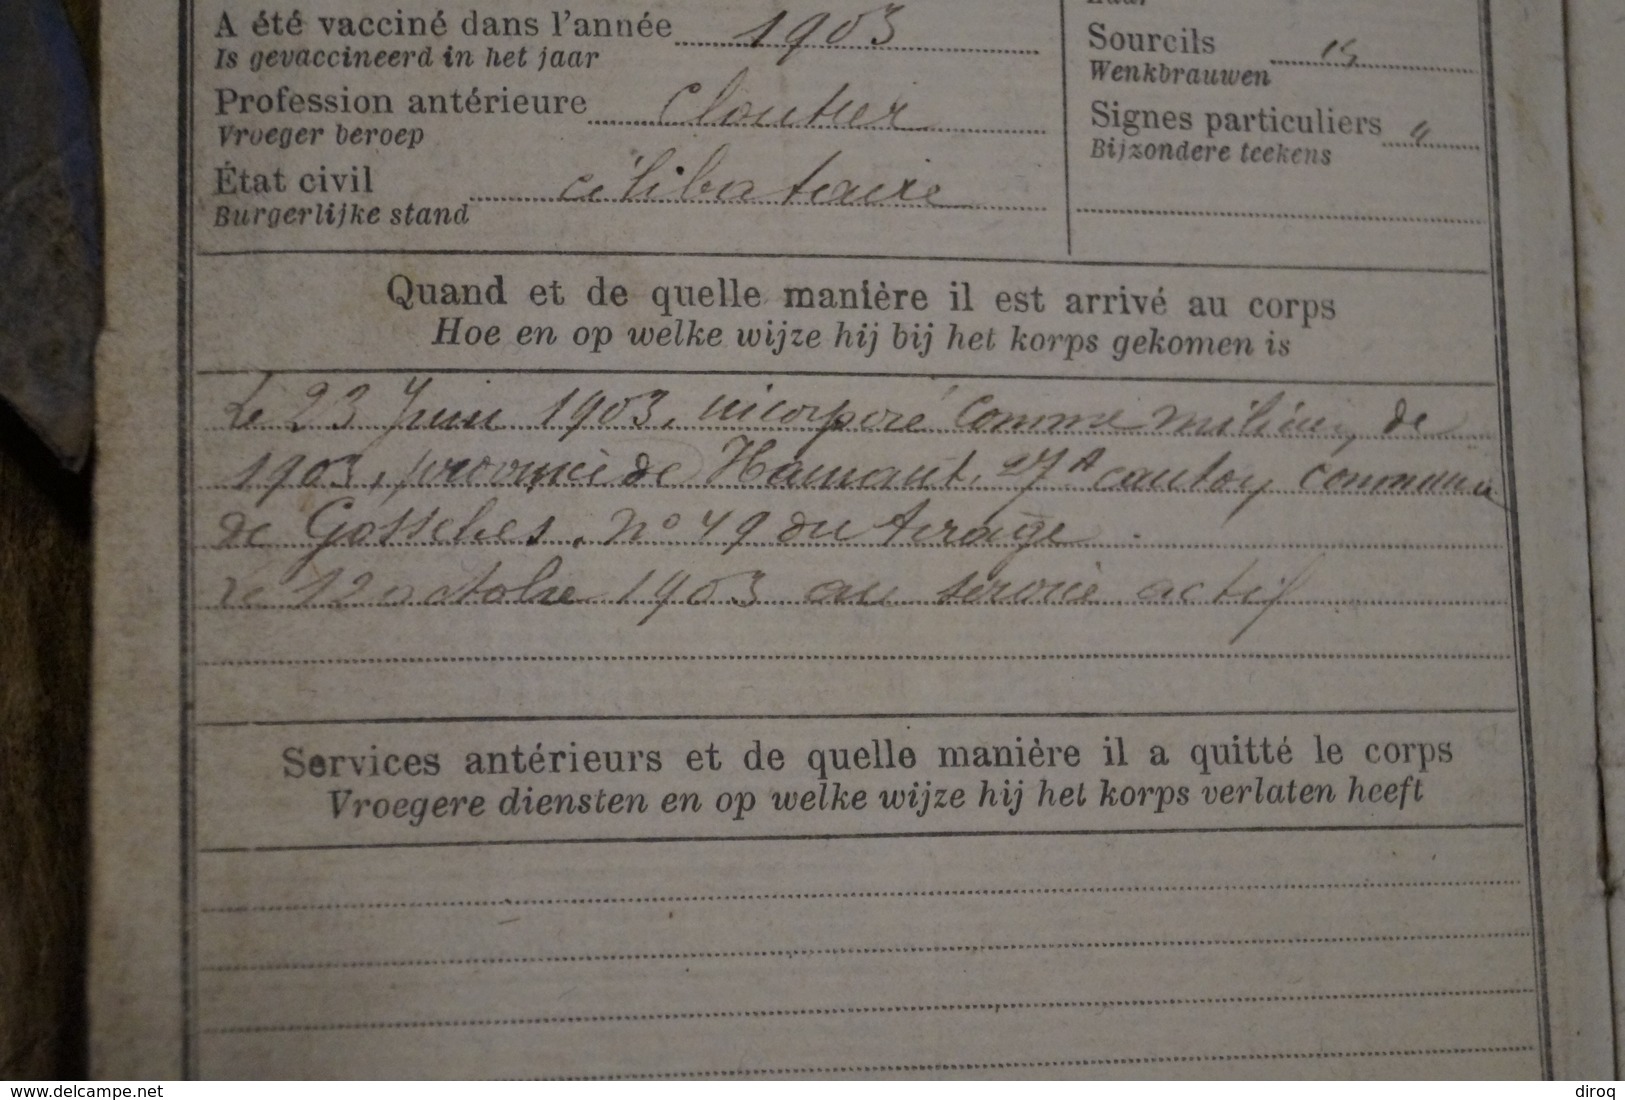 A été vacciné dans l'année 1903
Is gevaccineerd in het jaar
Profession antérieure Cloutier
Vroeger beroep
État civil célibataire
Burgerlijke stand
Sourcils id
Wenkbrauwen
Signes particuliers "
Bijzondere teekens
Quand et de quelle manière il est arrivé au corps
Hoe en op welke wijze hij bij het korps gekomen is
Le 23 Juin 1903, incorporé comme milicien de
1903, province de Hainaut, 27A canton, commune
de Gosselies, n° 49 du tirage.
Le 12 octobre 1903 au service actif
Services antérieurs et de quelle manière il a quitté le corps
Vroegere diensten en op welke wijze hij het korps verlaten heeft
www.delcampe.net
diroq